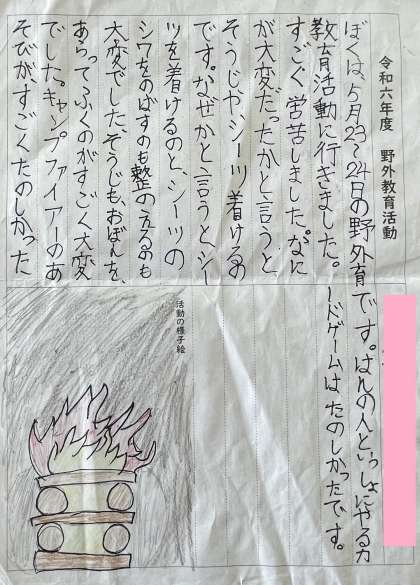 令和六年度　野外教育活動
ぼくは、5月23〜24日の野外育
教育活動に行きました。
すごく営苦しました。なに
が大変だったかと言うと、
そうじや、シーツ着けるの
です。なぜかと言うと、シー
ツを着けるのと、シーツの
シワをのばすのも整のえるのも
大変でした、そうじも、おぼんを、
あらってふくのがすごく大変
でした。キャンプファイアーのあ
そびが、すごくたのしかった
です。はんの人といっしょにやるカ
ードゲームはたのしかったです。
活動の様子絵